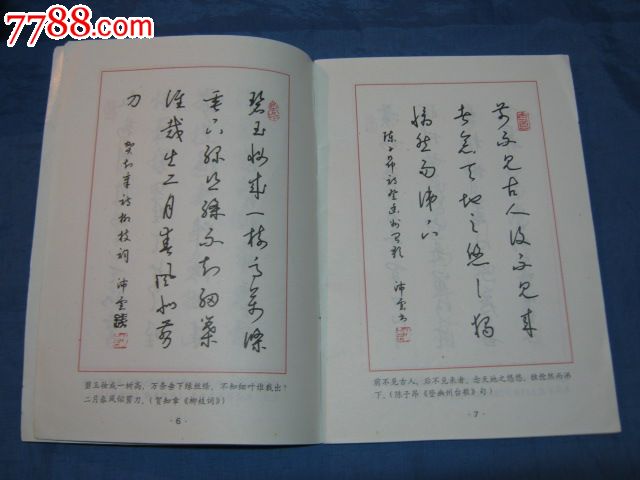 7788.com
碧玉妆成一树高万条
垂下绿丝绦不知细叶
谁裁出二月春风似剪
刀
贺知章诗柳枝词 沛云
碧玉妆成一树高，万条垂下绿丝绦，不知细叶谁裁出？
二月春风似剪刀。（贺知章《柳枝词》）
·6·
前不见古人后不见来
者念天地之悠悠独
怆然而涕下
陈子昂诗登幽州台歌 沛云书
前不见古人，后不见来者，念天地之悠悠，独怆然而涕
下。（陈子昂《登幽州台歌》句）
·7·